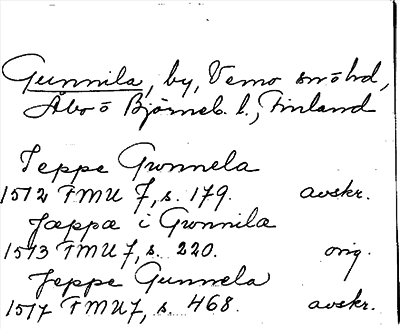 Gunnila, by, Vemo snöhd,
Åbo o Björneb. l., Finland
Jeppe Gwnnela
1512 FMU 7, s. 179. avskr.
Jæppæ i Gwnnilæ
1513 FMU 7, s. 220. orig.
Jeppe Gunnela
1517 FMU 7, s. 468. avskr.